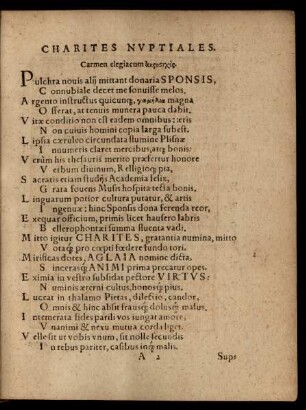 CHARITES NVPTIALES.
Carmen elegiacum
Pulchra nouis alij mittant donaria SPONSIS,
Connubiale decet me sonuisse melos,
Argento instructus quicunq, magna
Offerat, at tenuis munera pauca dabit,
Vitæ conditio non est eadem omnibus: æris
Non cuiuis homini copia larga subest.
Lipsia cæruleo circumdata flumine Plisnæ
Innumeris claret mercibus, atq; bonis:
Verùm his thesauris meritò præfertur honore
Verbum diuinum, Religioq; pia,
Sacratis etiam studijs Academia felix,
Grata fouens Musis hospita tecta bonis,
Linguarum potior cultura putatur, & artis
Ingenuæ: hinc Sponsis dona ferenda reor,
Exequar officium, primis licet hausero labris
Bellerophontæi flumina sueta vadi.
Mitto igitur CHARITES, gratantia numina, mitto
Voraq; pro cœpti fœdere fundo tori.
Mirificas dotes, AGLAIA nomine dicta,
Sinceras; ANIMI prima precatur opes.
Eximia in vestro subsidat pectore VIRTVS:
Numinis æterni cultus, honosq; pius,
Luceat in thalamo Pietas, dilectio, candor,
Omnis & hinc absit frausq; dolusq; malus,
Intemerata fides parili vos iungat amore,
Vnanimi & nexu mutua corda liget.
Velle sit vt vobis vnum, sit nolle secundis
In rebus pariter, casibus inq; malis.
A 2 Supe